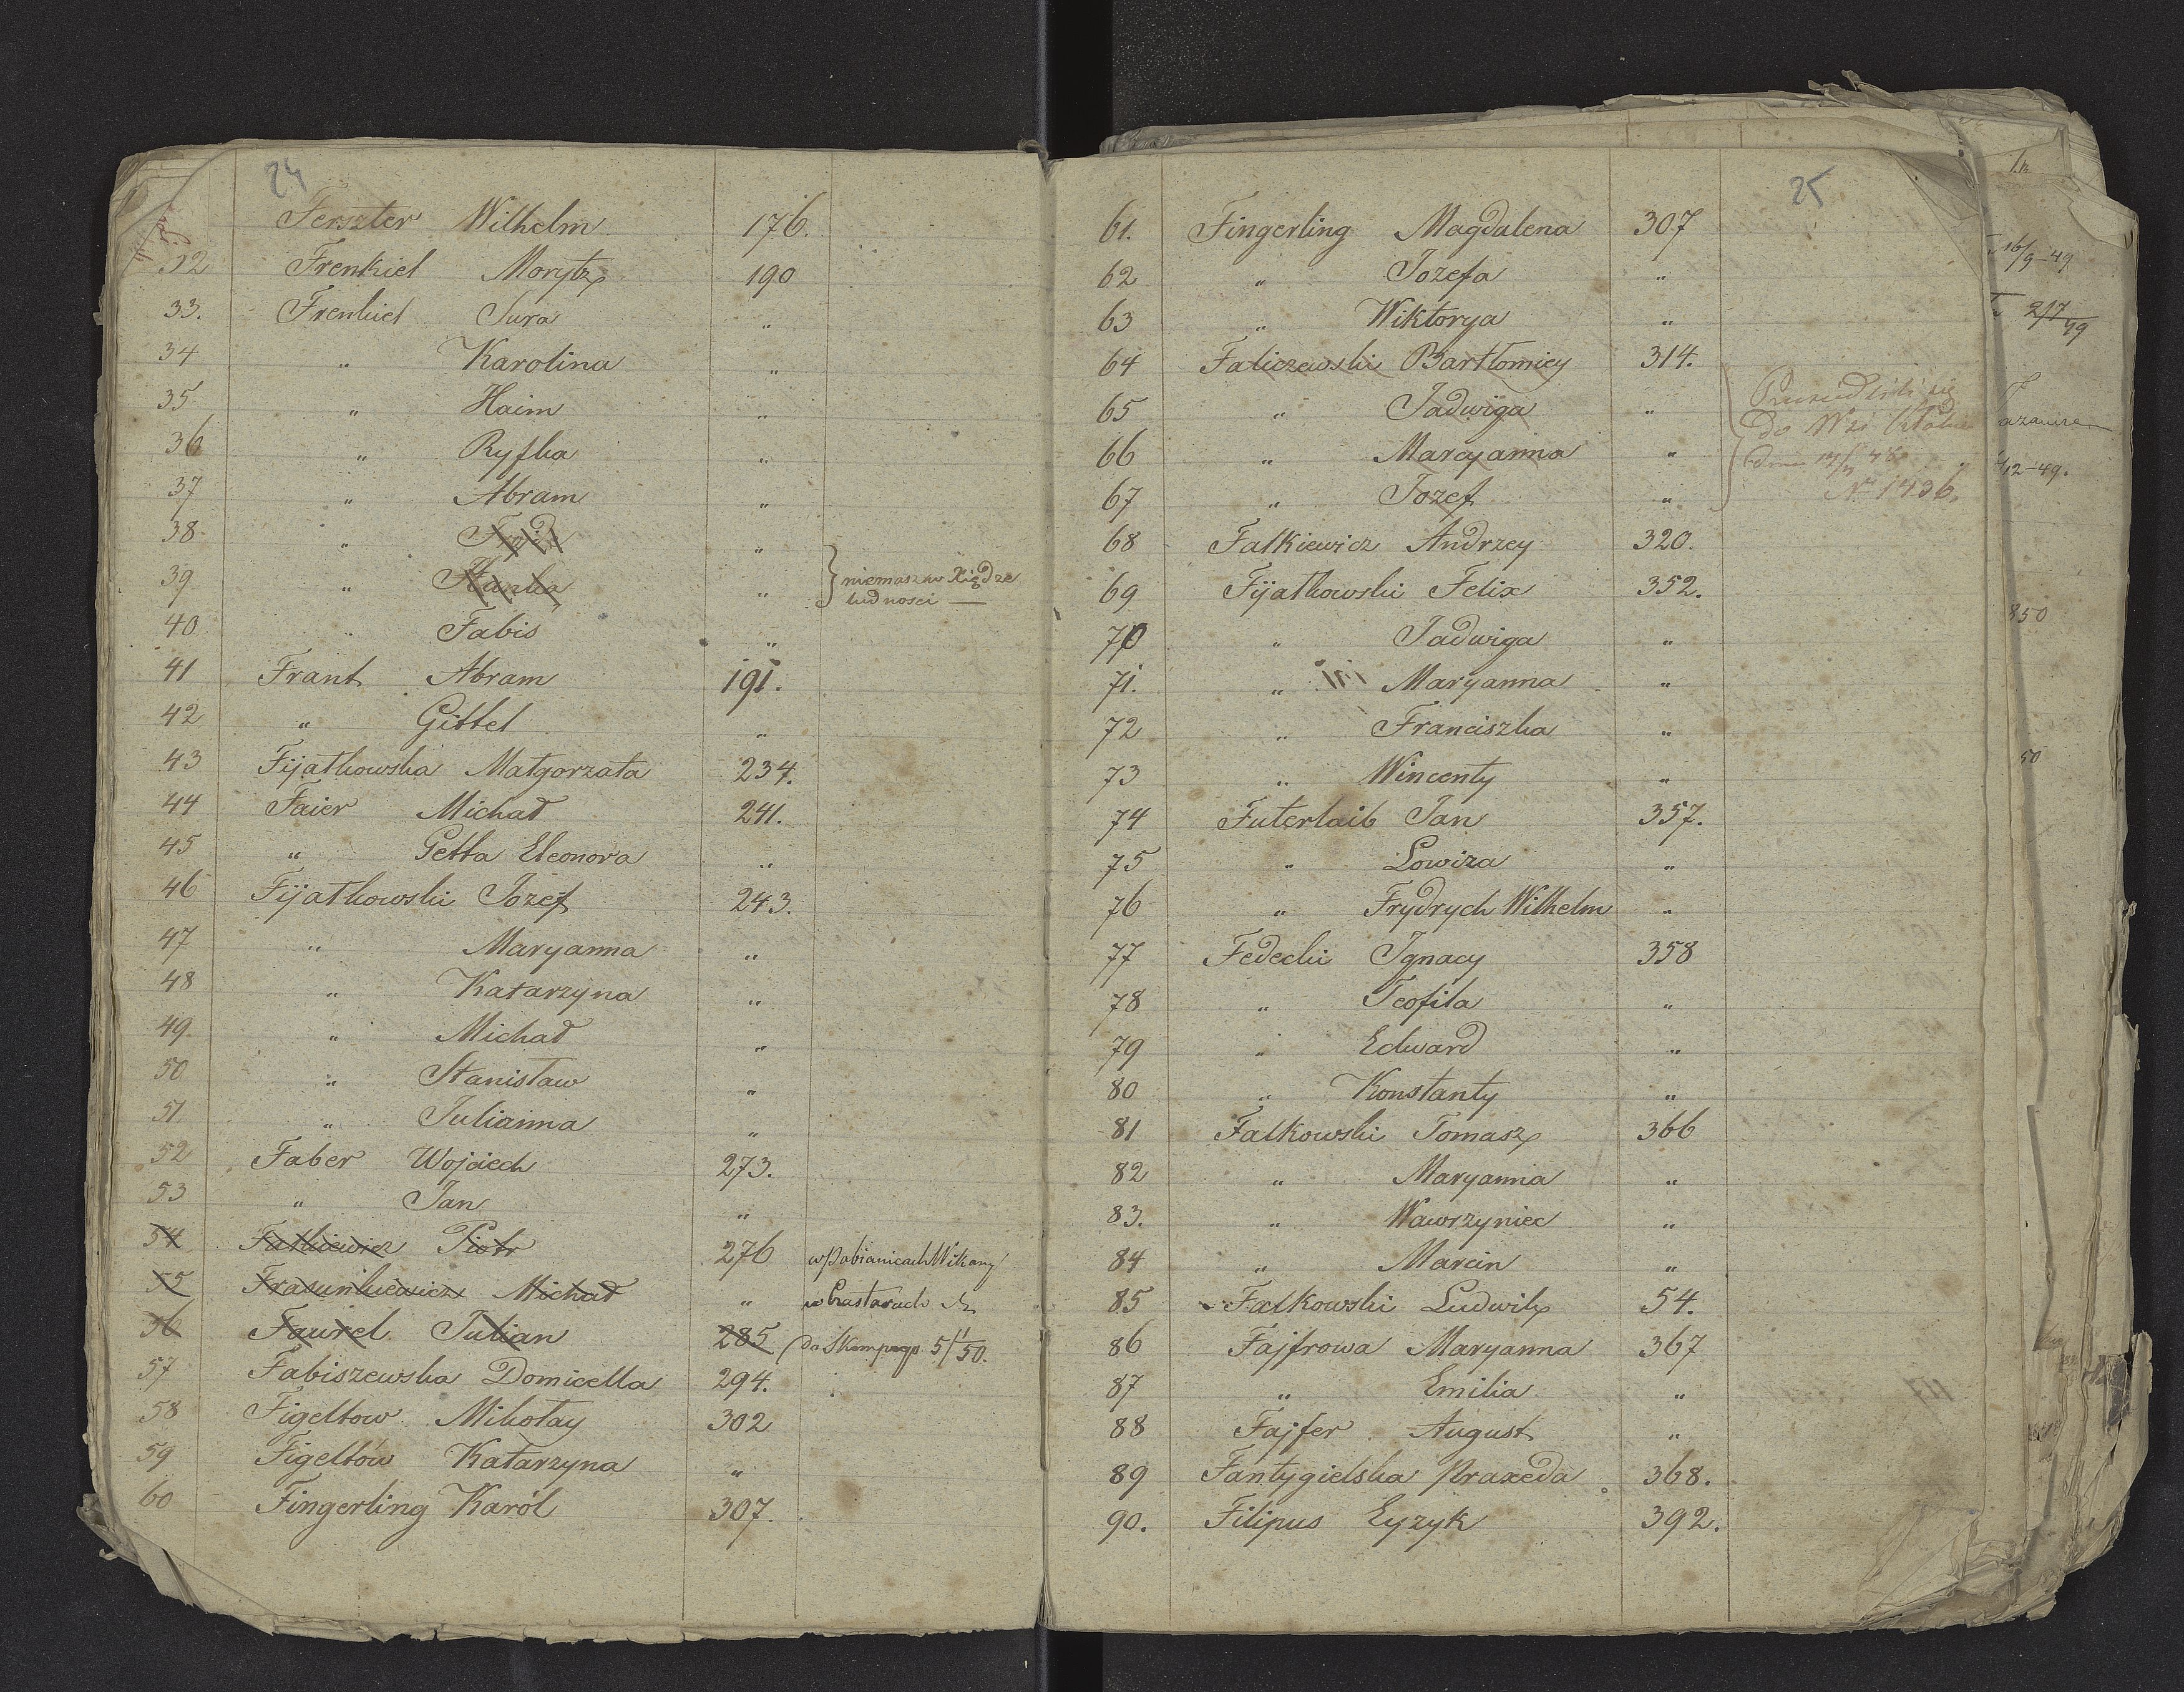 24
Ferszter Wilhelm 176.
32 Frenkiel Morytz 190
33. Frenkiel Sura "
34 " Karolina "
35 " Haim "
36 " Ryfka "
37 " Abram "
38 " "
39 " Hanka " niemasz w Xiędze
ludnosci —
40 " Fabis "
41 Frant Abram 191.
42 " Gittel "
43 Fijatkowska Małgorzata 234.
44 Faier Michał 241.
45 " Petta Eleonora "
46 Fijatkowski Józef 243.
47 " Maryanna "
48 " Katarzyna "
49 " Michał "
50 " Stanisław "
51 " Julianna "
52 Faber Wojciech 273.
53 " Jan "
54 Fatkiewicz Piotr 276 w Pabianicach
55 Frasunkiewicz Michał "
56 Faurel Julian 285 5/1 50.
57 Fabiszewska Domicella 294.
58 Figeltow Mikołay 302
59 Figeltów Katarzyna "
60 Fingerling Karól 307.
25
61. Fingerling Magdalena 307
62 " Jozefa "
63 " Wiktorya "
64 Faliczewski Bartłomiey 314.
65 " Jadwiga "
66 " Maryanna "
67 " Jozef "
do Wsi
N 1436.
68 Falkiewicz Andrzey 320.
69 Fijatkowski Felix 352.
70 " Jadwiga "
71. " Maryanna "
72 " Franciszka "
73 " Wincenty "
74 Futerlaib Jan 357.
75 " Lowiza "
76 " Frydrych Wilhelm "
77 Fedecki Ignacy 358
78 " Teofila "
79 " Edward "
80 " Konstanty "
81 Falkowski Tomasz 366
82 " Maryanna "
83. " Wawrzyniec "
84 " Marcin "
85 Falkowski Ludwik 54.
86 Fajfrowa Maryanna 367
87 " Emilia "
88 Fajfer August "
89 Fantygielska Praxeda 368.
90. Filipus Eyzyk 392.
16/9-49
2/7 49
/12-49.
850
50